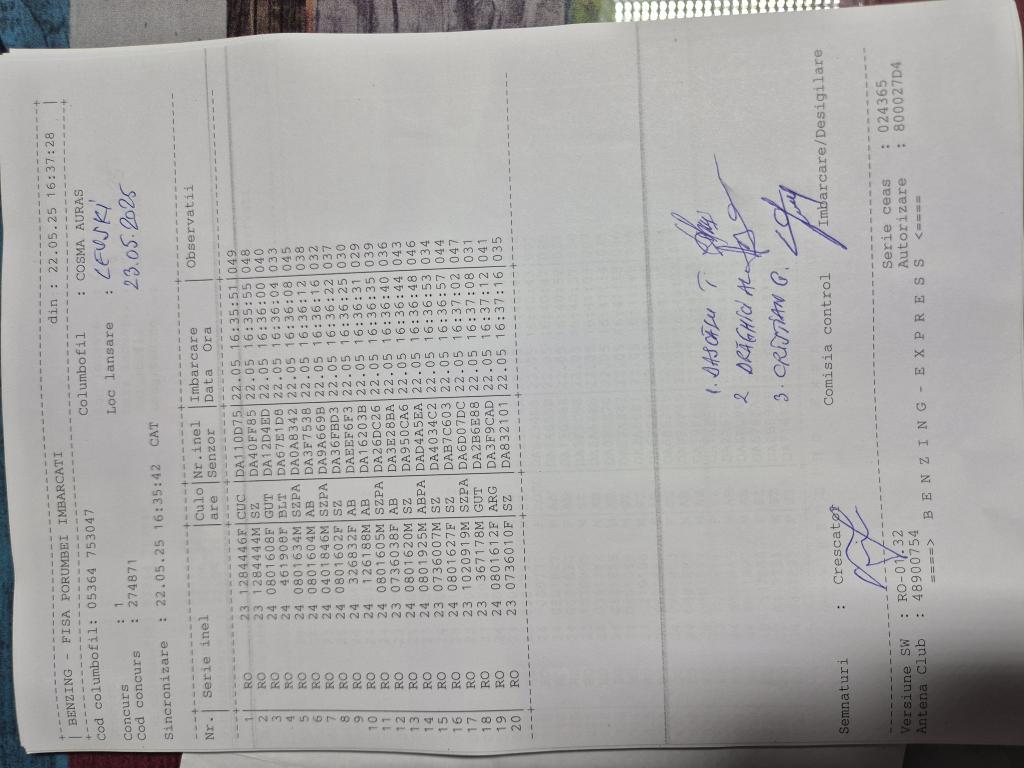 | BENZING - FISA PORUMBEI IMBARCATI din : 22.05.25 16:37:28 |
Cod columbofil: 05364 753047 Columbofil : COSMA AURAS
Concurs : 1 Loc lansare : LEVSKI
Cod concurs : 274871 23.05.2025
Sincronizare : 22.05.25 16:35:42 CAT
Nr. | Serie inel | Culo | Nr.inel | Imbarcare | Observatii
are | Senzor | Data Ora
1 RO 23 1284446F CUC DA110D75 22.05 16:35:51 049
2 RO 23 1284444M SZ DA40FF85 22.05 16:35:55 048
3 RO 24 0801608F GUT DA12D4ED 22.05 16:36:00 040
4 RO 24 461908F BLT DA67E1D8 22.05 16:36:04 033
5 RO 24 0801634M SZPA DA0A8342 22.05 16:36:08 045
6 RO 24 0801604M AB DA3F7538 22.05 16:36:12 038
7 RO 24 0401846M SZPA DA9A669B 22.05 16:36:16 032
8 RO 24 0801602F SZ DA36FBD3 22.05 16:36:22 037
9 RO 24 326832F AB DAEEF6F3 22.05 16:36:25 030
10 RO 24 126188M AB DA16203B 22.05 16:36:31 029
11 RO 24 0801605M SZPA DA26DC26 22.05 16:36:35 039
12 RO 23 0736038F AB DA3E28BA 22.05 16:36:40 036
13 RO 24 0801620M SZ DA950CA6 22.05 16:36:44 043
14 RO 24 0801925M ABPA DAD4A5EA 22.05 16:36:48 046
15 RO 23 0736007M SZ DA4034C2 22.05 16:36:53 034
16 RO 24 0801627F SZ DAB7C603 22.05 16:36:57 044
17 RO 23 1020919M SZPA DA6D07DC 22.05 16:37:02 047
18 RO 23 367178M GUT DA2B6E88 22.05 16:37:08 031
19 RO 24 0801612F ARG DA3F9CAD 22.05 16:37:12 041
20 RO 23 0736010F SZ DA832101 22.05 16:37:16 035
1. DASCALU T
2 DRĂGHICI
3. CRISTIAN P.
Semnaturi : Crescator Comisia control Imbarcare/Desigilare
Versiune SW : RO-01/32 Serie ceas : 024365
Antena Club : 48900754 Autorizare : 800027D4
====> B E N Z I N G - E X P R E S S <====